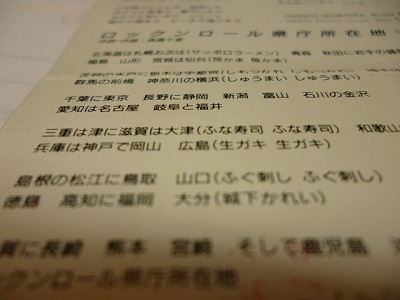 ロックンロール県庁所在地
北海道は札幌お次は(サッポロラーメン) 青森
福島 山形 宮城は仙台(笹かま 笹かま)
茨城の水戸に栃木は宇都宮
群馬の前橋 神奈川の横浜(しゅうまい しゅうまい)
千葉に東京 長野に静岡 新潟 富山 石川の金沢
愛知は名古屋 岐阜と福井
三重は津に滋賀は大津(ふな寿司 ふな寿司) 和歌山
兵庫は神戸で岡山 広島(生ガキ 生ガキ)
島根の松江に鳥取 山口(ふぐ刺し ふぐ刺し)
徳島 高知に福岡 大分(城下かれい)
賀に長崎 熊本 宮崎 そして鹿児島
ックンロール県庁所在地